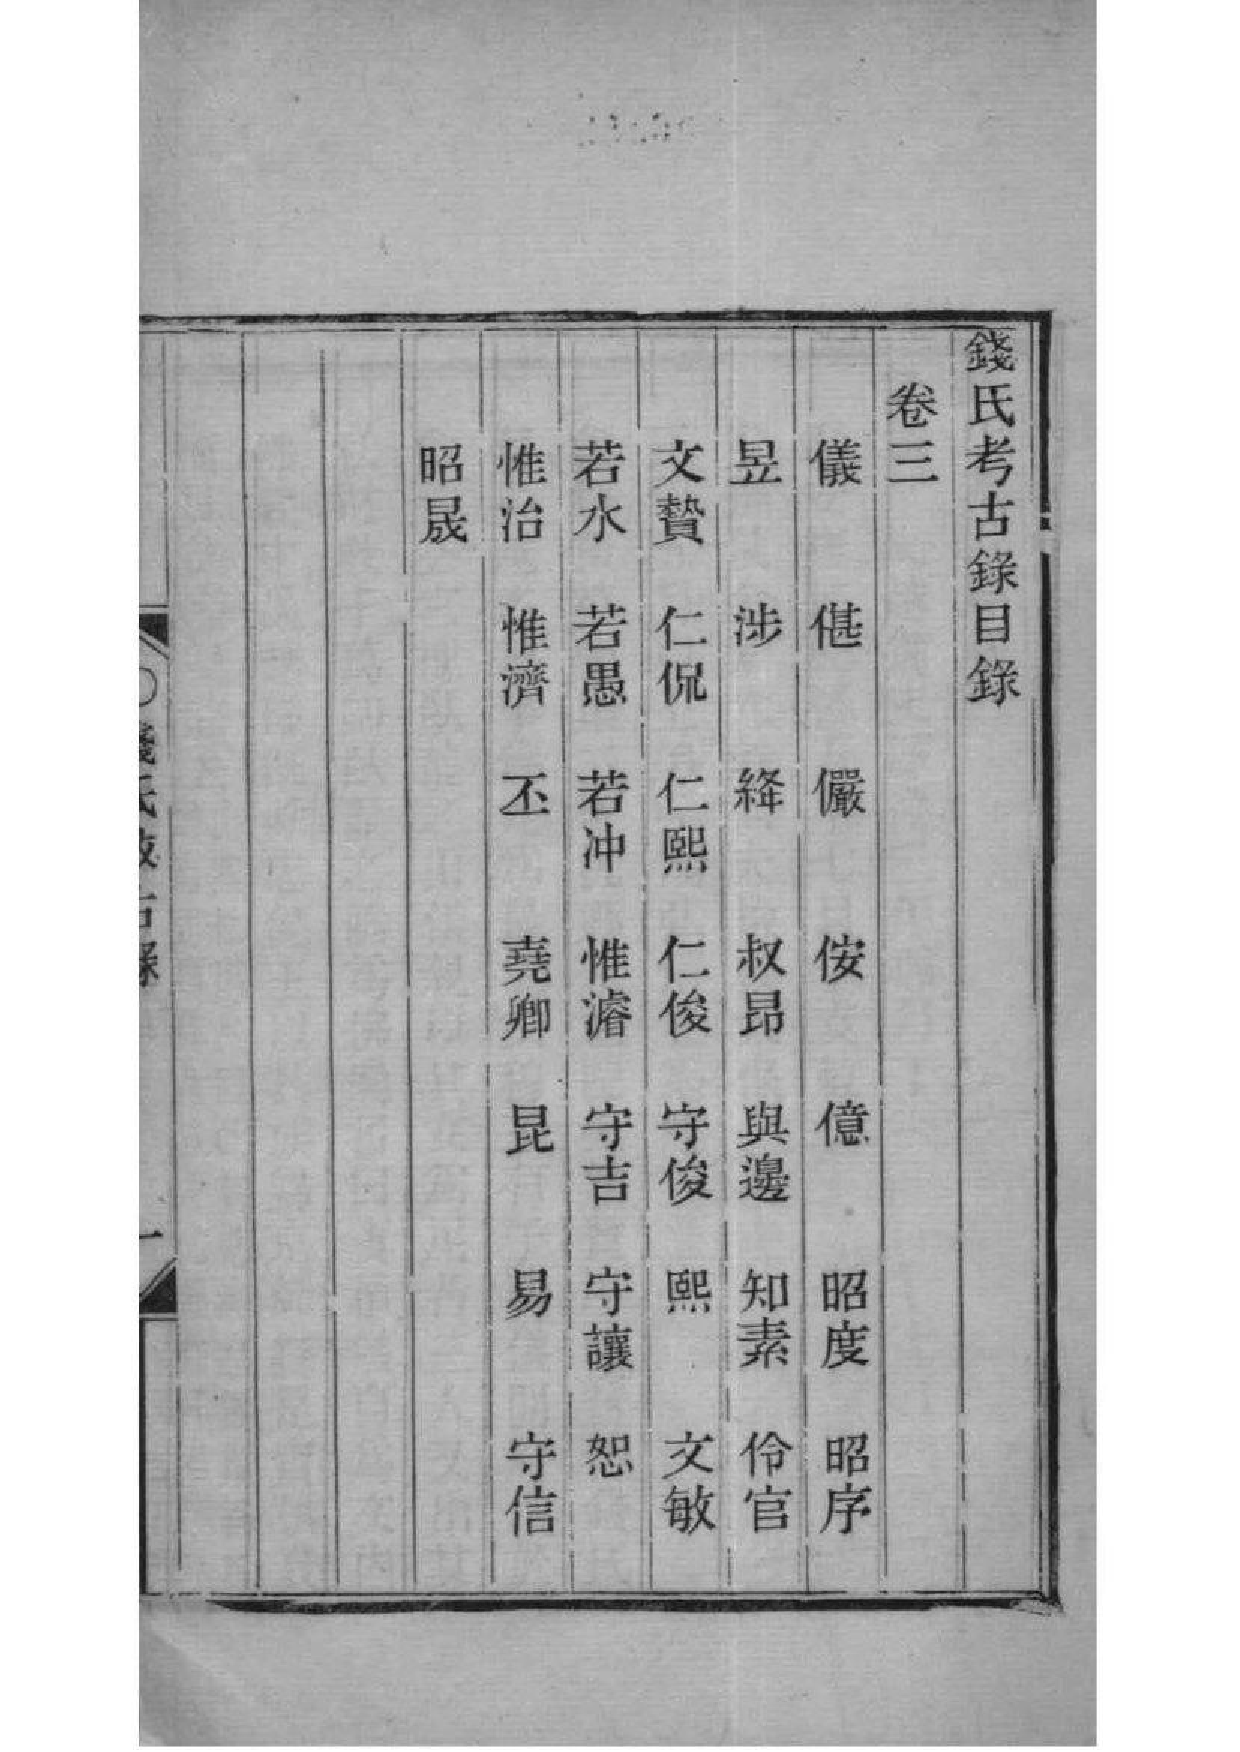 錢氏考古錄目錄
卷三
儀 偡 儼 侒 億 昭度 昭序
昱 涉 絳 叔昂 與邊 知素 伶官
文贄 仁侃 仁熙 仁俊 守俊 熙 文敏
若水 若愚 若冲 惟濬 守吉 守讓 恕
惟治 惟濟 丕 堯卿 昆 易 守信
昭晟
〇錢氏考古錄
一